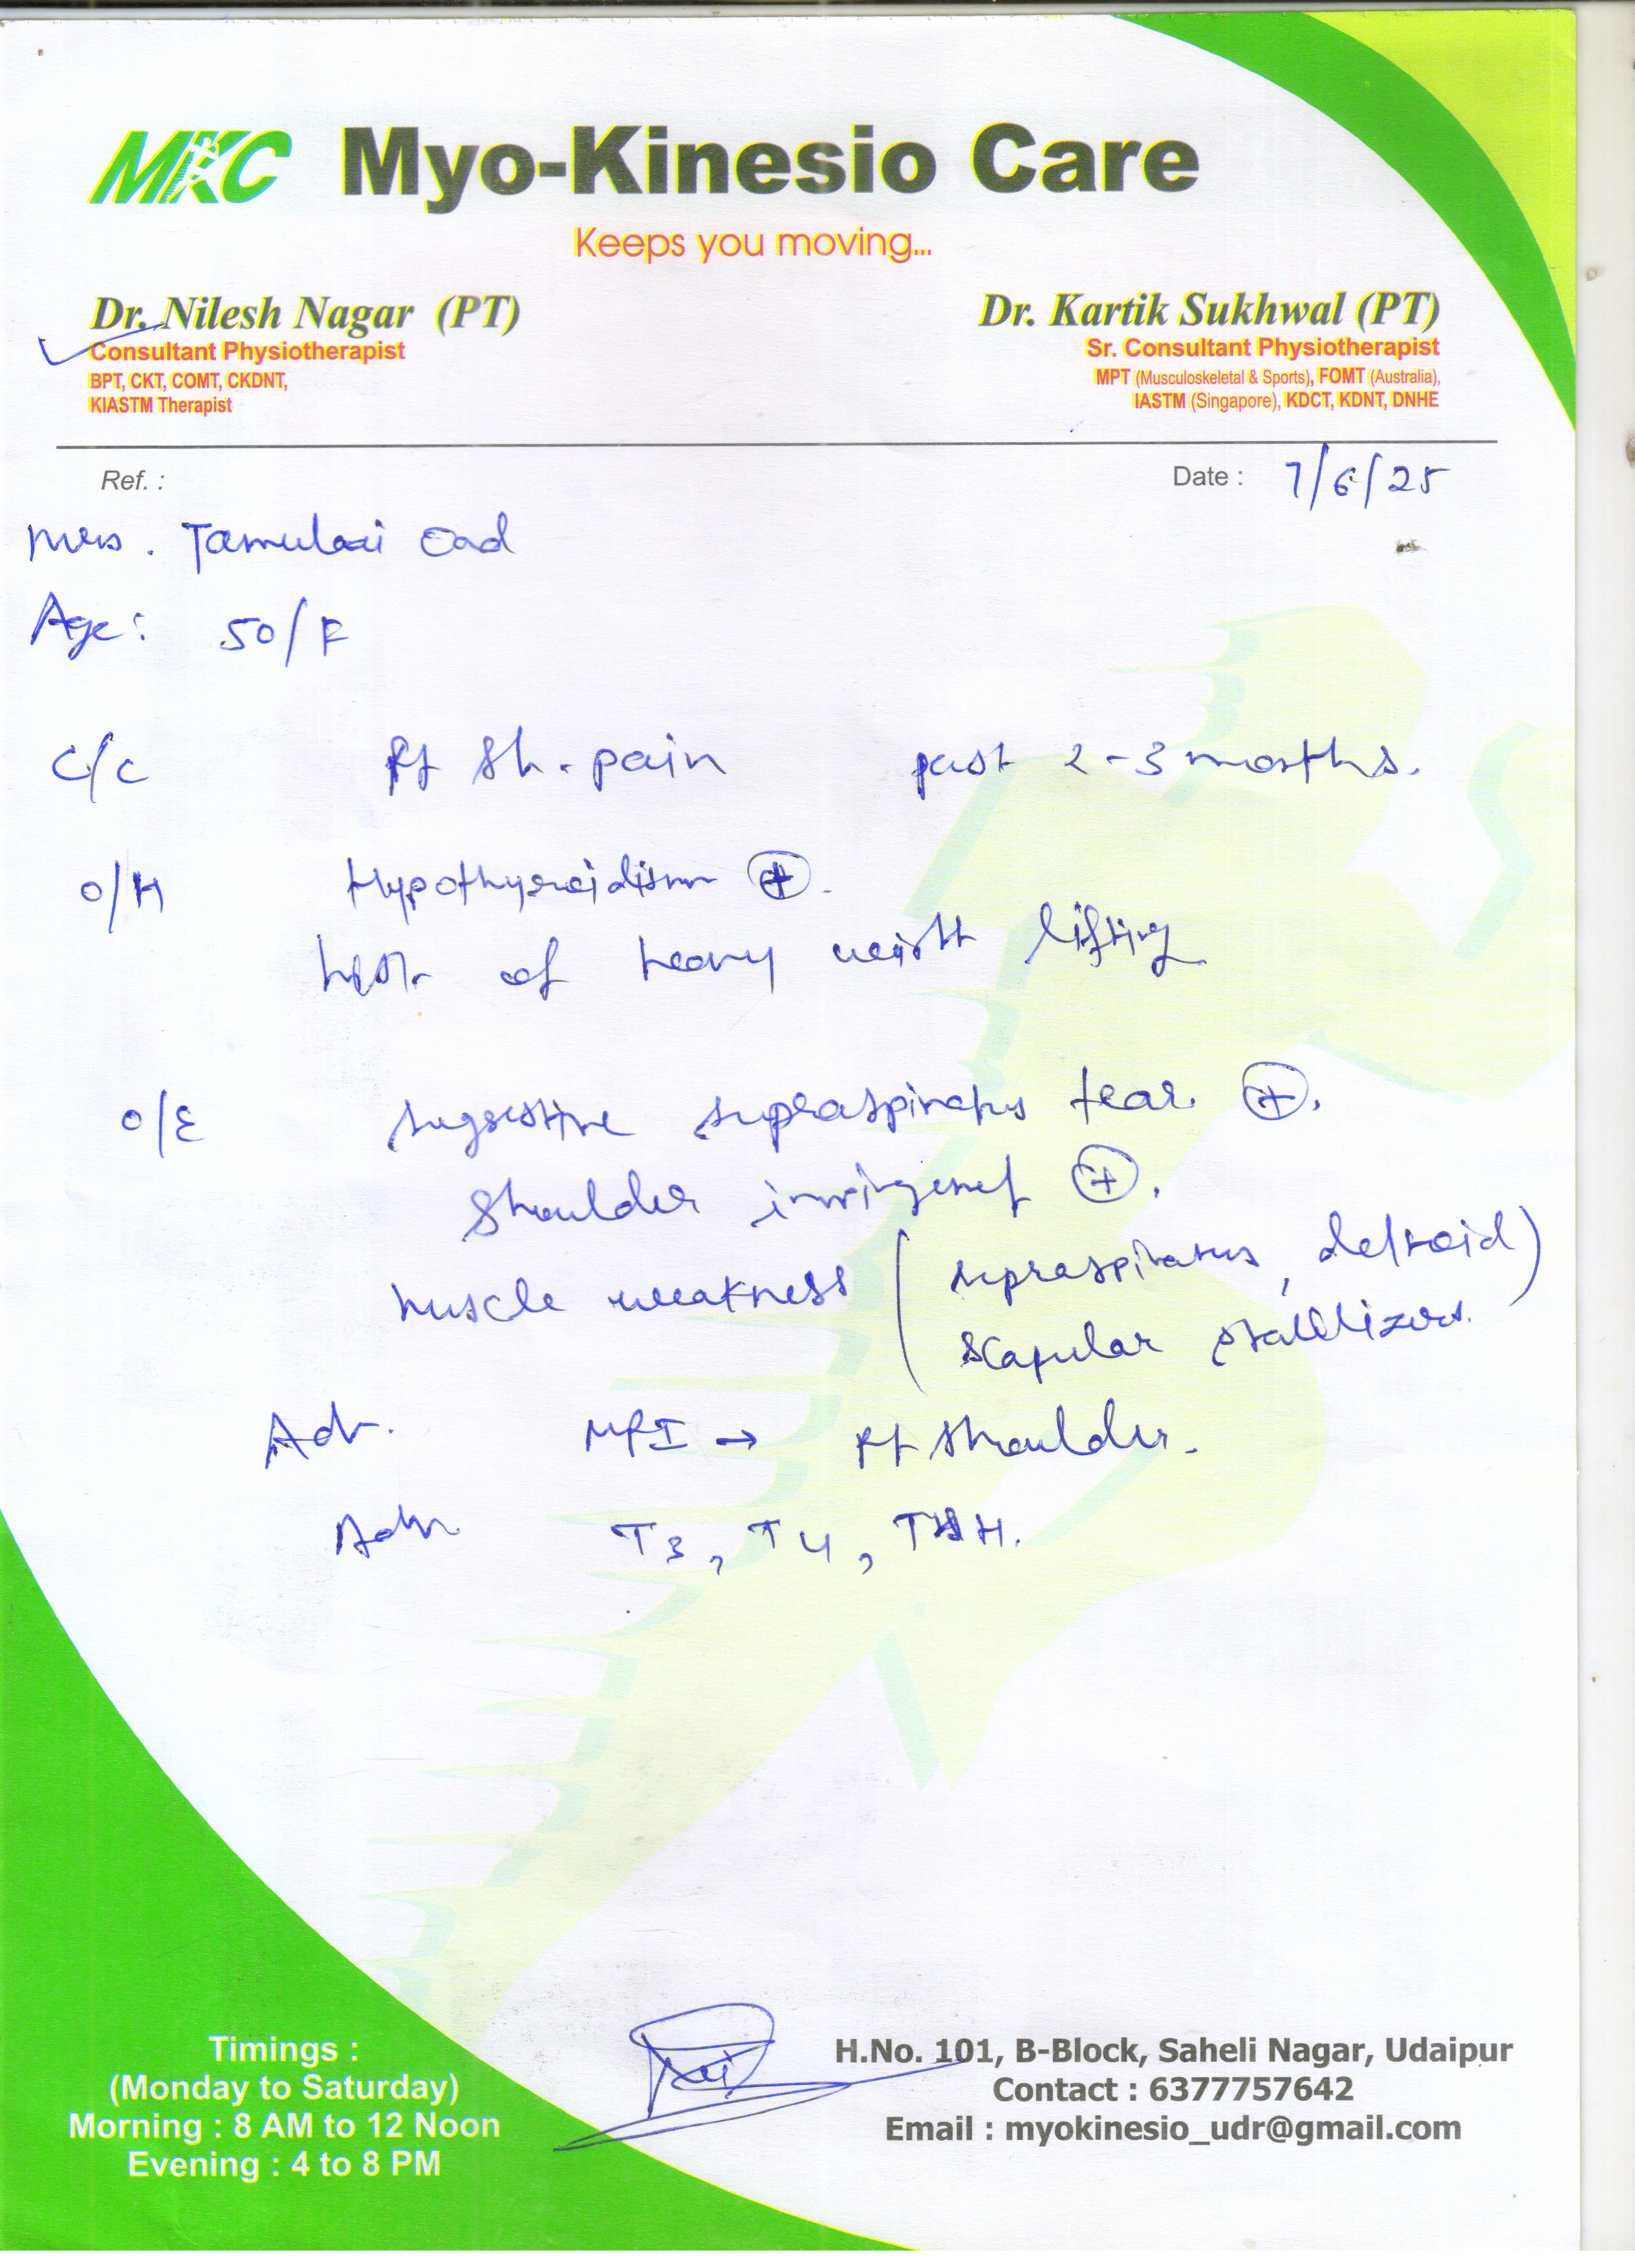 MKC Myo-Kinesio Care
Keeps you moving...
Dr. Nilesh Nagar (PT)
Consultant Physiotherapist
BPT, CKT, COMT, CKDNT,
KIASTM Therapist
Dr. Kartik Sukhwal (PT)
Sr. Consultant Physiotherapist
MPT (Musculoskeletal & Sports), FOMT (Australia),
IASTM (Singapore), KDCT, KDNT, DNHE
Ref. :
Date : 7/6/25
Mrs.
Age: 50/F
C/C Rt Sh. pain past 2-3 months.
O/H Hypothyroidism +.
of heavy lifting
O/E suggestive supraspinatus tear +.
Shoulder +.
Muscle weakness (supraspinatus, deltoid)
scapular stabilizers.
Adv. MRI → Rt shoulder.
Adv. T3, T4, TSH.
Timings :
(Monday to Saturday)
Morning : 8 AM to 12 Noon
Evening : 4 to 8 PM
H.No. 101, B-Block, Saheli Nagar, Udaipur
Contact : 6377757642
Email : myokinesio_udr@gmail.com